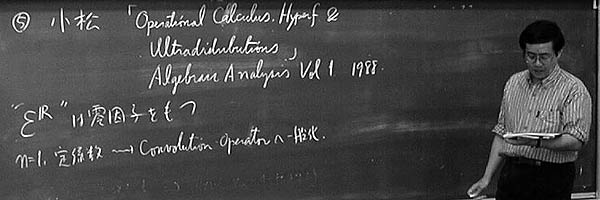 ⑤ 小松 「Operational Calculus, Hyperf &
Ultradistributions」
Algebraic Analysis Vol 1 1988.
"ℰ^ℝ" は零因子をもつ
n=1, 定係数 → Convolution Operator へ一般化.